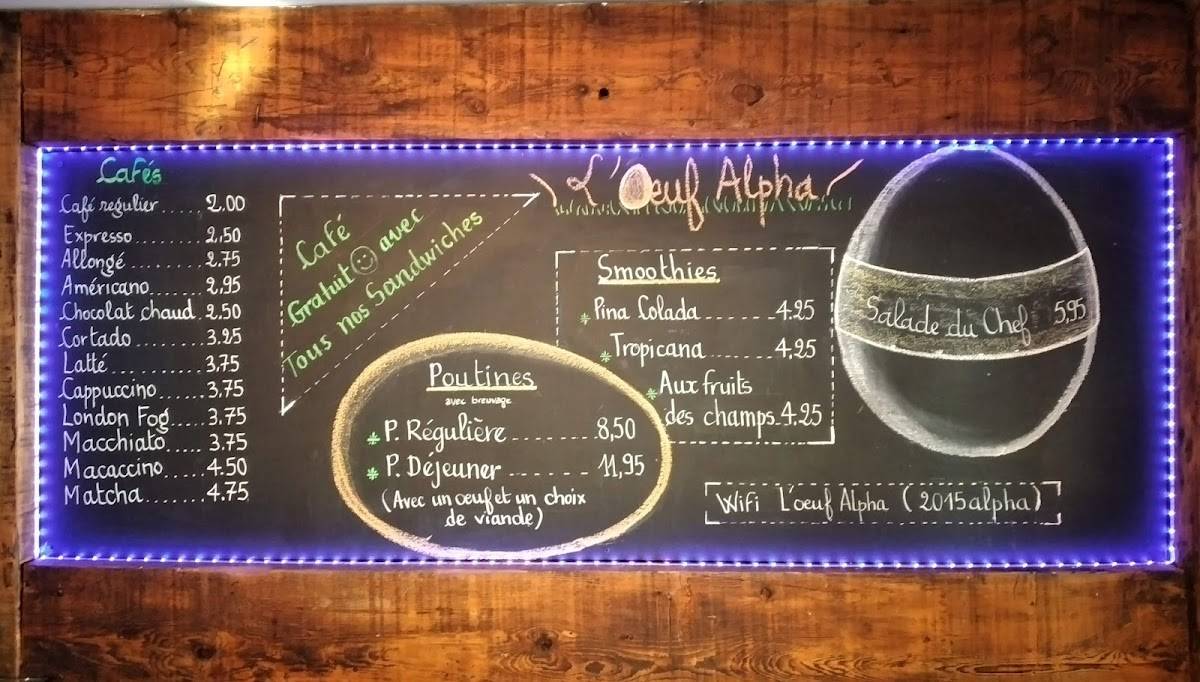 Cafés
Café regulier ..... 2.00
Expresso ........ 2,50
Allongé ......... 2.75
Américano ....... 2,95
Chocolat chaud . 2.50
Cortado ......... 3.25
Latté ........... 3,75
Cappuccino ...... 3,75
London Fog ..... 3.75
Macchiato ..... 3.75
Macaccino ..... 4.50
Matcha ....... 4.75
Café
Gratuit avec
Tous nos Sandwiches
L'Oeuf Alpha
Smoothies
Pina Colada ...... 4.25
Tropicana ....... 4,25
Aux fruits
des champs .. 4.25
Poutines
avec breuvage
P. Régulière ......... 8,50
P. Déjeuner ........ 11,95
(Avec un oeuf et un choix
de viande)
Salade du Chef 5,95
Wifi L'oeuf Alpha (2015alpha)